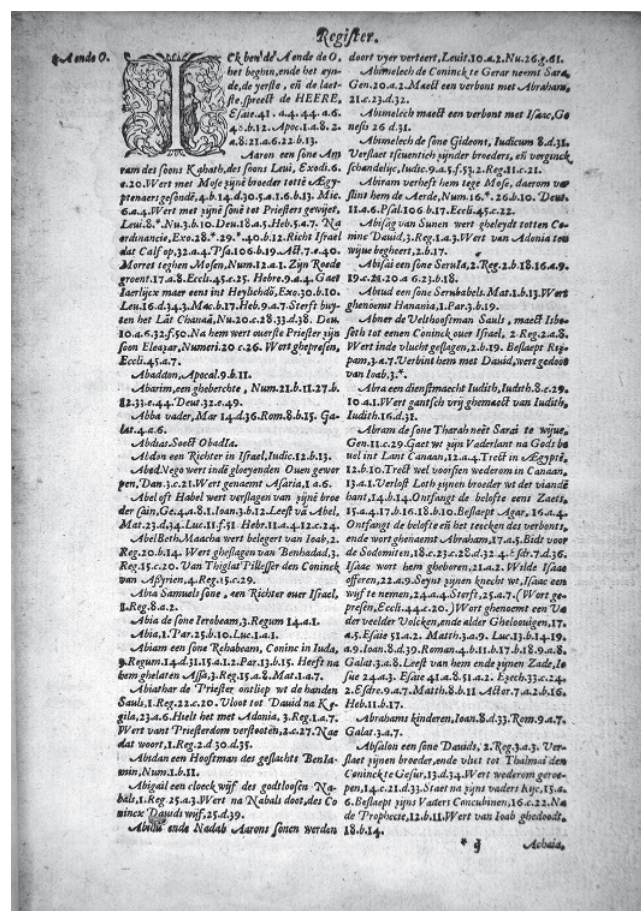 Register.
A ende O.
ICk ben de A ende de O.
het beghin, ende het eyn-
de, de yerste, eñ de laet-
ste. spreeckt de HEERE,
Esaie.41. a.4. 44.a.6.
48.b.12. Apoc.1.a.8.2.
a.8.21.a.6.22.b.13.
Aaron een sone Am
ram des soons Kahath, des soons Leui, Exodi.6.
e.20. Wert met Mose zijnē broeder tottē Ægy-
ptenaers gesondē, 4.b.14.d.30.5.a.1.6.b.13. Mic.
6.a.4. Wert met zijnē sonē tot Priesters gewijet,
Leui.8.*.Nu.3.b.10. Deu.18.a.5. Heb.5.a.7. Na
ordinancie, Exo.28.*.29.*.40.b.12. Richt Israel
dat Calf op, 32.a.4. Psa.106.b.19 Act.7.e.40.
Morret teghen Mosen, Num.12.a.1. Zijn Roede
groent.17.a.8. Eccli.45.c.25. Hebre.9.a.4. Gaet
Iaerlijcx maer eens int Heylichdō, Exo.30.b.10.
Leu.16.d.34.3. Mac.b.17. Heb.9.a.7. Sterft buy-
ten het Lāt Chanaā, Nu.20.c.28.33.d.38. Deu.
10.a.6.32.f.50. Na hem wert ouerste Priester zijn
soon Eleazar, Numeri.20 c.26. Wert ghepresen,
Eccli.45.a.7.
Abaddon, Apocal.9.b.11.
Abarim, een gheberchte, Num.21.b.11.27.b.
12.33.e.44. Deut.32.e.49.
Abba vader, Mar 14.d.36. Rom.8.b.15. Ga-
lat.4.a.6.
Abdias. Soect Obadia.
Abdon een Richter in Israel, Iudic.12.b.13.
Abed Nego wert inde gloeyenden Ouen gewor
pen, Dan.3.c.21. Wert genaemt Asaria, 1 a.6.
Abel oft Habel wert verslagen van zijnē broe
der Cain, Ge.4.a.8.1. Ioan.3.b.12. Leeft vā Abel,
Mat.23.d.34. Luc.11.f.51 Hebr.11.a.4.12.c.24.
Abel Beth, Maacha wert belegert van Ioab, 2.
Reg.20.b.14. Wert gheslagen van Benhadad, 3.
Reg.15.c.20. Van Thiglat Pillesser den Coninck
van Assyrien, 4.Reg.15.c.29.
Abia Samuels sone, een Richter ouer Israel,
1.Reg.8.a.2.
Abia de sone Ierobeam, 3.Regum 14.a.1.
Abia, 1.Par.25.b.10. Luc.1.a.1.
Abiam een sone Rehabeam, Coninc in Iuda,
3.Regum.14.d.31.15.a.1.2. Par.13.b.15. Heeft na
hem ghelaten Assa, 3.Reg.15.a.8. Mat.1.a.7.
Abiathar de Priester ontliep wt de handen
Sauls, 1.Reg.22.c.20. Vloot tot Dauid na Ke-
gila, 23.a.6. Hielt het met Adonia, 3.Reg.1.a.7.
Wert vant Priesterdom verstooten, 2.c.27. Nae
dat woort, 1.Reg.2.d 30.d.35.
Abidan een Hooftman des geslachts Benia-
min, Num.1.b.11.
Abigail een cloeck wijf des godtloosen Na-
bals, 1.Reg.25.a.3. Wert na Nabals doot, des Co
nincx Dauids wijf, 25.d.39.
Abihu ende Nadab Aarons sonen werden
doort vyer verteert, Leuit.10.a.2. Nu.26.g.61.
Abimelech de Coninck te Gerar neemt Sara,
Gen.20.a.2. Maect een verbont met Abraham,
21.c.23.d.32.
Abimelech maect een verbont met Isaac, Ge
nesis 26 d.31.
Abimelech de sone Gideons, Iudicum 8.d.31.
Verslaet tseuentich zijnder broeders, eñ verginck
schandelijc, Iudic.9.a.5.f.53.2.Reg.11.c.21.
Abiram verheft hem tegē Mose, daerom ver
slint hem de Aerde, Num.16.*.26.b.10. Deut.
11.a.6. Psal.106 b.17. Eccli.45.c.22.
Abisag van Sunen wert gheleydt totten Co-
ninc Dauid, 3.Reg.1.a.3. Wert van Adonia tot
wijue begheert, 2.b.17.
Abisai een sone Seruia, 2.Reg.2.b.18.16.a.9.
19.c.21.20.a 6.23.b.18.
Abiud een sone Serubabels. Mat.1.b.13. Wert
ghenoemt Hanania, 1.Par.3.b.19.
Abner de Velthooftman Sauls, maect Isbo-
seth tot eenen Coninck ouer Israel, 2.Reg.2.a.8.
Wert inde vlucht geslagen, 2.b.19. Beslaept Riz-
pam, 3.a.7. Verbint hem met Dauid, wert gedoot
van Ioab, 3.*.
Abra een dienstmaecht Iudith, Iudith.8.c.29.
10.a.1. Wert gantsch vrij ghemaect van Iudith,
Iudith.16.d.31.
Abram de sone Tharah neēt Sarai te wijue,
Gen.11.c.29. Gaet wt zijn Vaderlant na Gods be
uel int Lant Canaan, 12.a.4. Trect in Ægyptē,
12.b.10. Trect wel voorsien wederom in Canaan,
13.a.1. Verlost Loth zijnen broeder wt der viandē
hant, 14.b.14. Ontfangt de belofte eens Zaets,
15.a.4.17 b.16.18.b.10. Beslaept Agar, 16.a.4.
Ontfangt de belofte eñ het teecken des verbonts,
ende wort ghenaemt Abraham, 17.a.5. Bidt voor
de Sodomiten, 18.c.23.c.28.d.32 4.Esdr.7.d.36.
Isaac wort hem gheboren, 21.a.2. Wilde Isaac
offeren, 22.a.9. Seynt zijnen knecht wt, Isaac een
wijf te nemen, 24.a.4. Sterft, 25.a.7. (Wert ge-
presen, Eccli.44.c.20.) Wert ghenoemt een Va
der veelder Volcken, ende alder Gheloouigen, 17.
a.5. Esaie 51.a.2. Matth.3.a.9. Luc.13.b.14.19.
a.9. Ioan.8.d.39. Roman.4.b.11.b.17.b.18.9.a.8.
Galat.3.a.8. Leest van hem ende zijnen Zade, Io
sue 24.a.3. Esaie 41.a.8.51.a.2. Ezech.33.c.24.
2.Esdre.9.a.7. Matth.8.b.11 Actor.7.a.2.b.16.
Heb.11.b.17.
Abrahams kinderen, Ioan.8.d.33. Rom.9.a.7.
Galat.3.a.7.
Absalon een sone Dauids, 2.Reg.3.a.3. Ver-
slaet zijnen broeder, ende vliet tot Thalmai den
Coninck te Gesur, 13.d.34. Wert wederom geroe-
pen, 14.c.21.d.33. Staet na zijns vaders Rijc, 15.a.
6. Beslaept zijns Vaders Concubinen, 16.c.22. Na
de Prophecie, 12.b.11. Wert van Ioab ghedoodt.
18.b.14.
* ij Achaia.